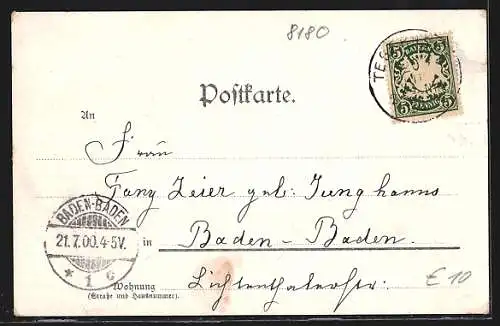 8180
TE
5 BAYERN 5
5 PFENNIG 5
Postkarte.
An
Frau
Fany Zeier geb. Junghanns
BADEN-BADEN
21.7.00.4-5V.
* 1 c
in Baden-Baden.
Wohnung Lichtenthalerstr.
(Straße und Hausnummer).
€ 10